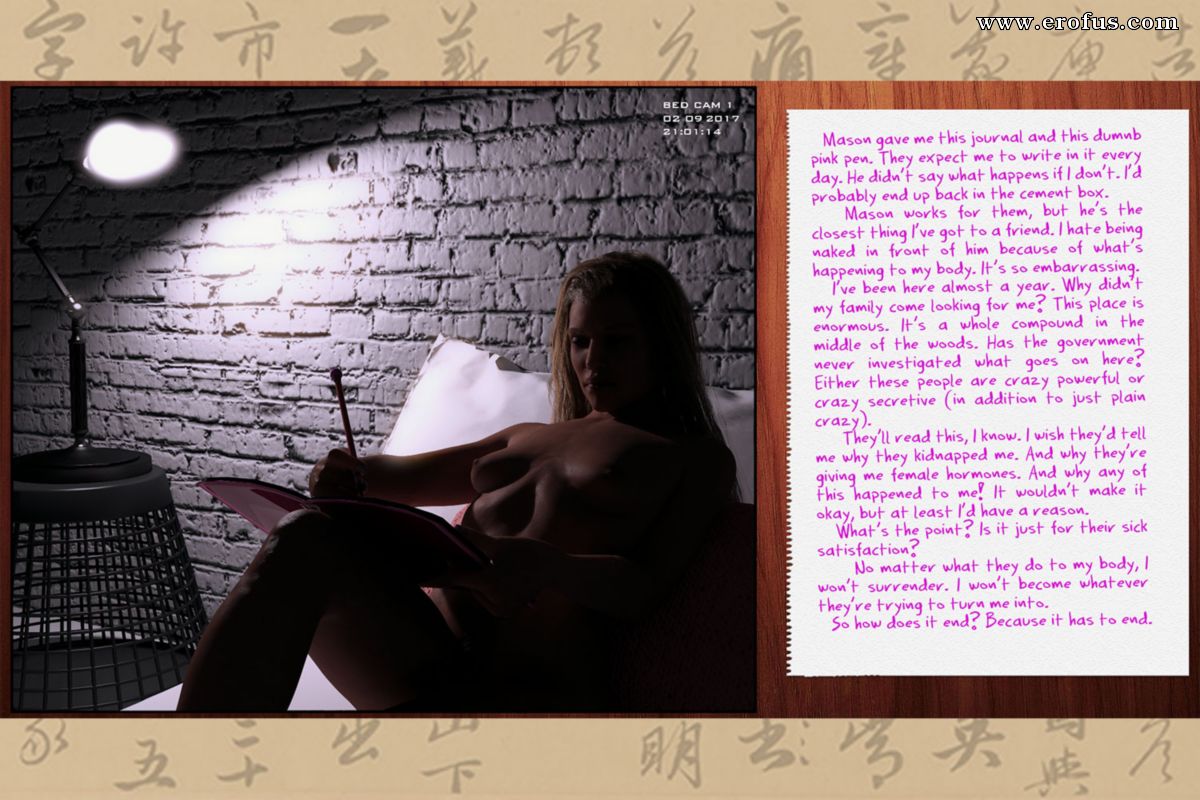 www.erofus.com
字 許 市
BED CAM 1
02 09 2017
21:01:14
Mason gave me this journal and this dumnb
pink pen. They expect me to write in it every
day. He didn't say what happens if I don't. I'd
probably end up back in the cement box.
Mason works for them, but he's the
closest thing I've got to a friend. I hate being
naked in front of him because of what's
happening to my body. It's so embarrassing.
I've been here almost a year. Why didn't
my family come looking for me? This place is
enormous. It's a whole compound in the
middle of the woods. Has the government
never investigated what goes on here?
Either these people are crazy powerful or
crazy secretive (in addition to just plain
crazy).
They'll read this, I know. I wish they'd tell
me why they kidnapped me. And why they're
giving me female hormones. And why any of
this happened to me! It wouldn't make it
okay, but at least I'd have a reason.
What's the point? Is it just for their sick
satisfaction?
No matter what they do to my body, I
won't surrender. I won't become whatever
they're trying to turn me into.
So how does it end? Because it has to end.
五 三十 出 山下 明 英